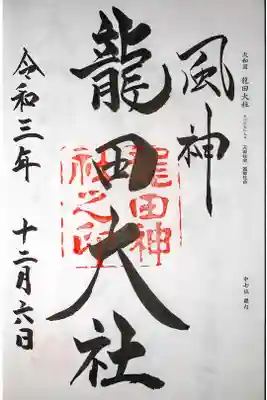 大和國 龍田大社
風神
龍田大社
龍田神社之印
令和三年 十二月六日